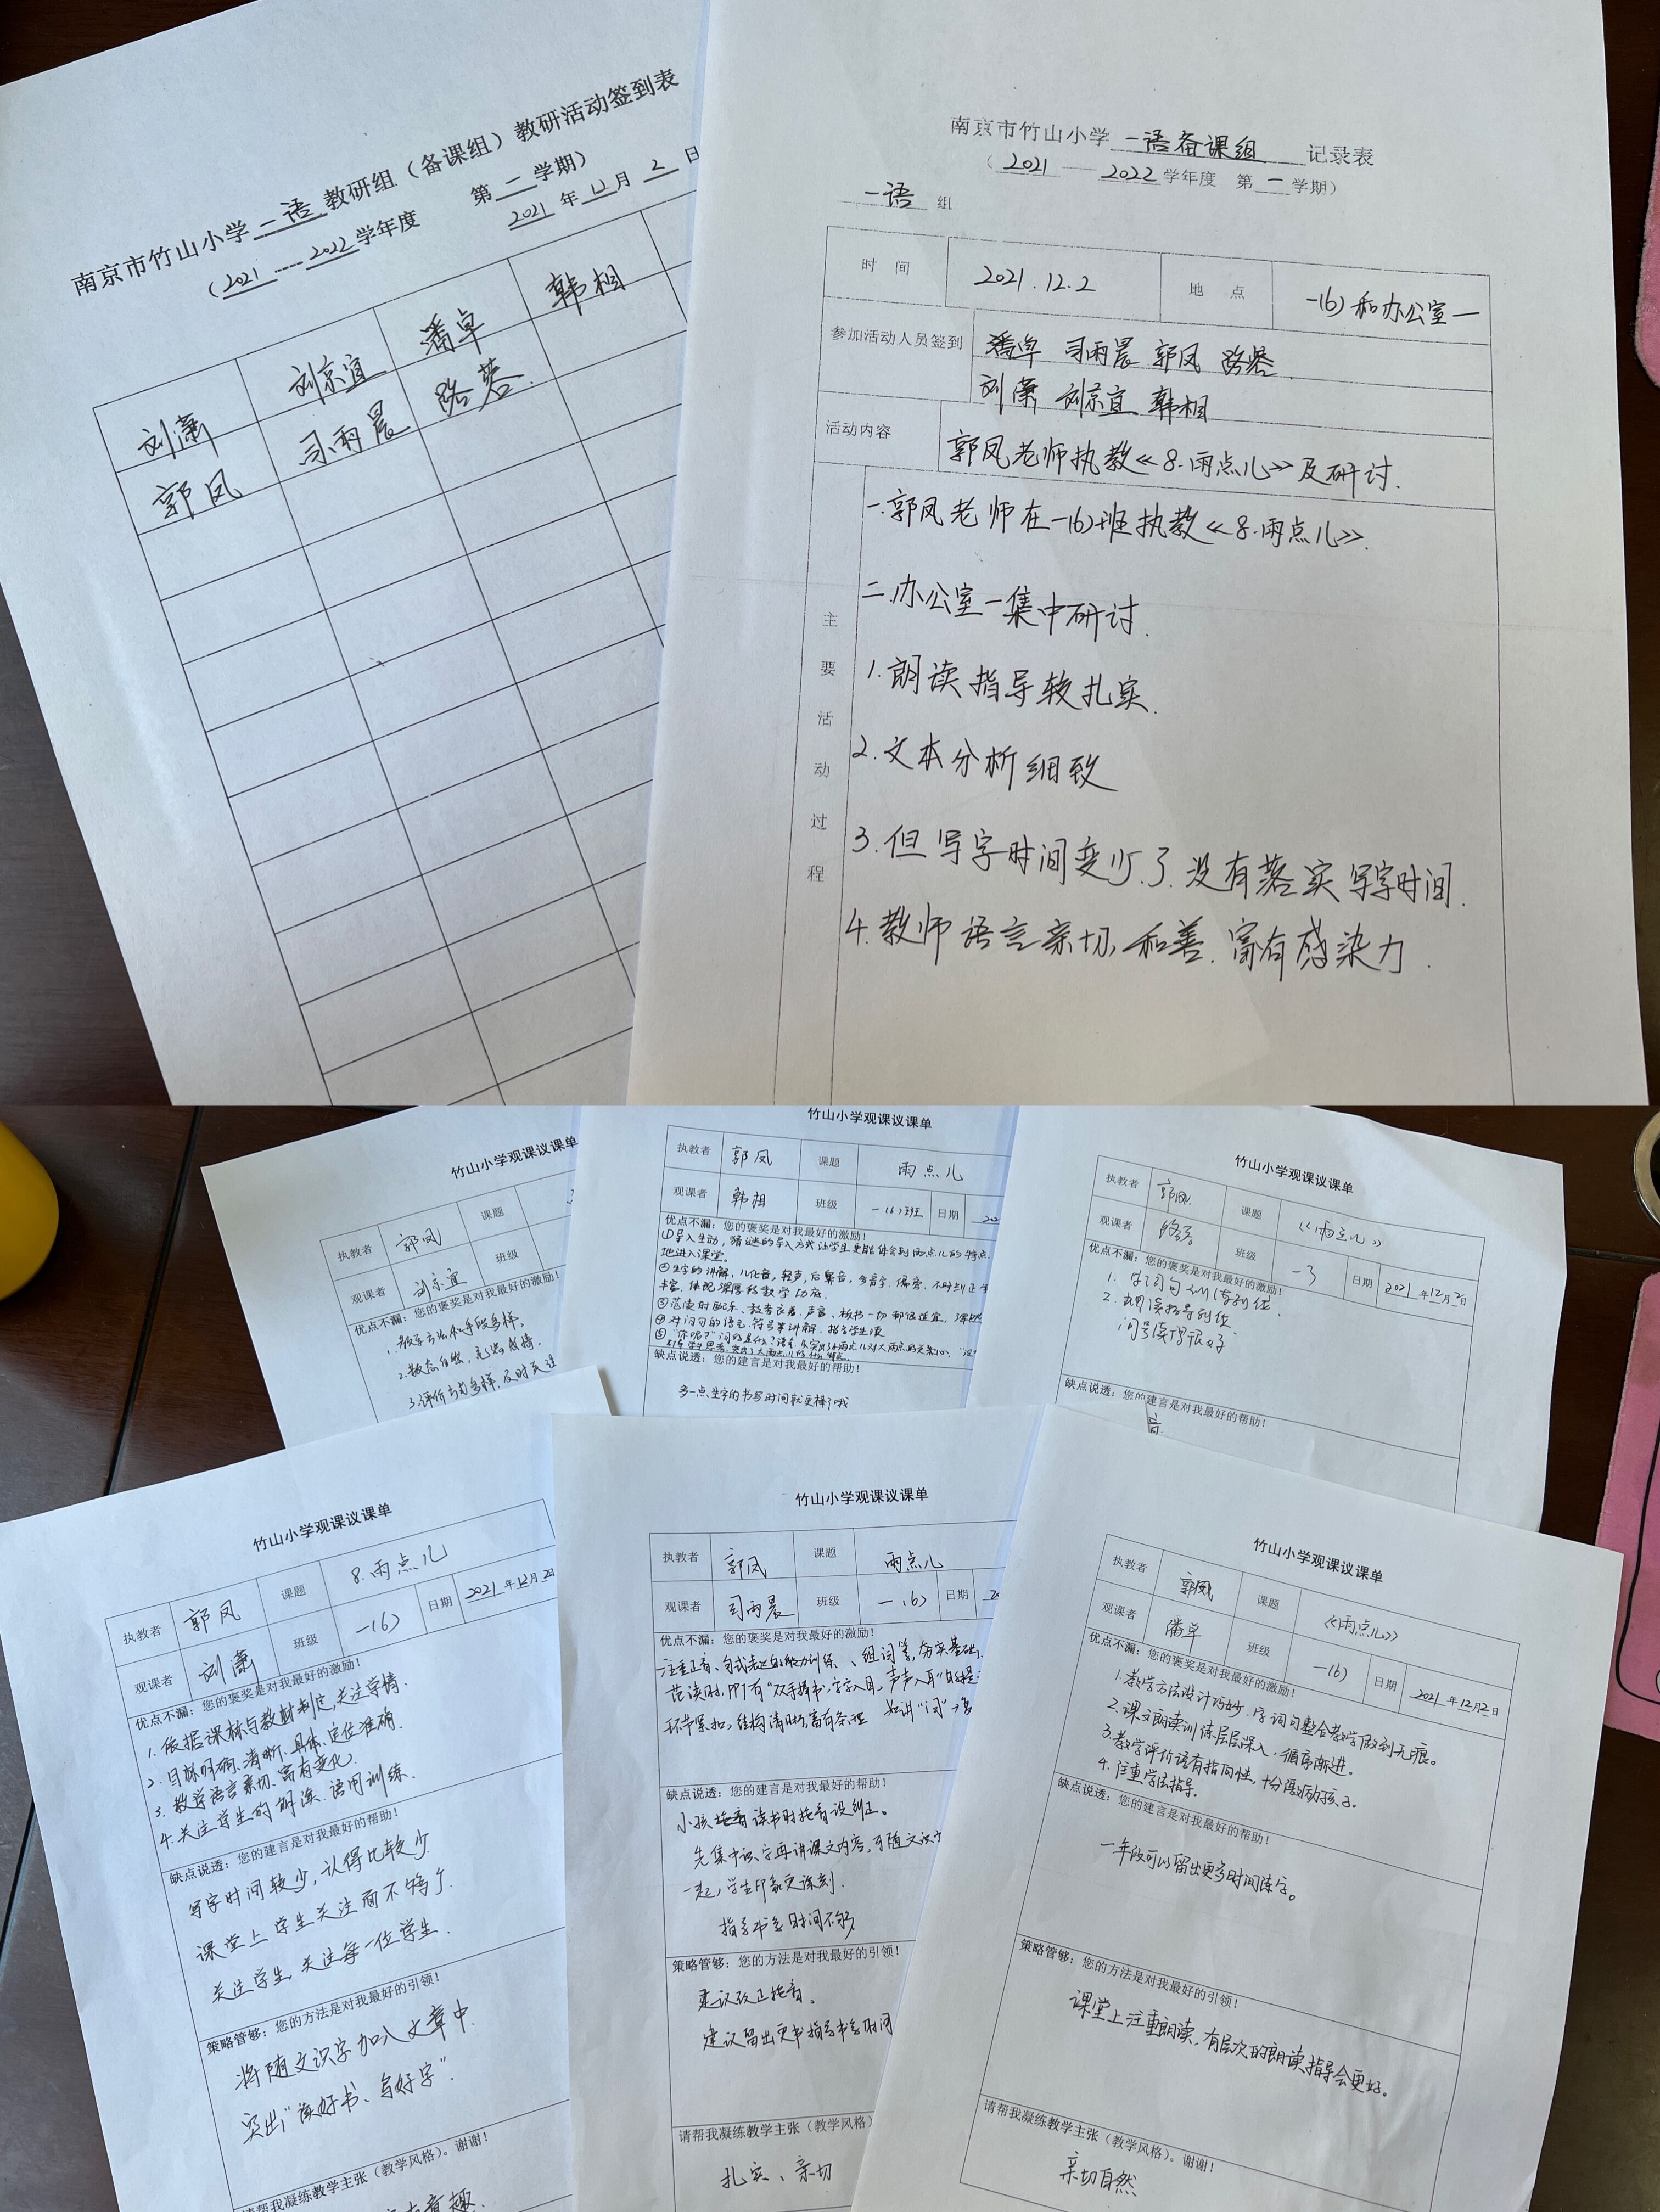 南京市竹山小学 一语 教研组（备课组）教研活动签到表
（2021 ---- 2022 学年度 第 一 学期）
2021 年 12 月 2 日
刘潇 刘京宜 潘卓 韩相
郭凤 司雨晨 路蓉
南京市竹山小学 一语备课组 记录表
（2021 —— 2022 学年度 第 一 学期）
一语 组
时 间 2021.12.2 地 点 一(6)和办公室一
参加活动人员签到 潘卓 司雨晨 郭凤 路蓉
刘潇 刘京宜 韩相
活动内容 郭凤老师执教《8.雨点儿》及研讨.
主要活动过程
一.郭凤老师在一(6)班执教《8.雨点儿》.
二.办公室一集中研讨.
1.朗读指导较扎实.
2.文本分析细致
3.但写字时间变少了.没有落实写字时间.
4.教师语言亲切,和善.富有感染力.
竹山小学观课议课单
执教者 郭凤 课题
观课者 刘京宜 班级
优点不漏：您的褒奖是对我最好的激励！
1.教学方法和手段多样。
2.教态自然，充满感情。
3.评价方式多样，及时
竹山小学观课议课单
执教者 郭凤 课题 雨点儿
观课者 韩相 班级 一(6)班 日期
优点不漏：您的褒奖是对我最好的激励！
①导入生动，猜谜的导入方式让学生更能体会到雨点儿的特点
地进入课堂。
②生字的讲解，儿化音，轻声，后鼻音，多音字，偏旁
丰富，体现深厚的教学功底。
③范读时配乐、教者衣着、声音、板书一切都很适宜
④对问句的语气、符号等讲解，指导学生读
缺点说透：您的建言是对我最好的帮助！
多一点生字的书写时间就更棒了哦
竹山小学观课议课单
执教者 郭凤 课题 《雨点儿》
观课者 路蓉 班级 一3 日期 2021年12月2日
优点不漏：您的褒奖是对我最好的激励！
1. 字词句
2. 朗读指导到位
问号读得很好
缺点说透：您的建言是对我最好的帮助！
竹山小学观课议课单
执教者 郭凤 课题 8.雨点儿
观课者 刘潇 班级 一(6) 日期 2021年12月2日
优点不漏：您的褒奖是对我最好的激励！
1. 依据课标与教材制定,关注学情.
2. 目标明确、清晰、具体、定位准确.
3. 教学语言亲切、富有变化.
4. 关注学生的朗读、语用训练.
缺点说透：您的建言是对我最好的帮助！
写字时间较少,认得比较少.
课堂上学生关注面不够广.
关注学生,关注每一位学生.
策略管够：您的方法是对我最好的引领！
将随文识字加入文章中.
突出"读好书、写好字".
请帮我凝练教学主张（教学风格）。谢谢！
竹山小学观课议课单
执教者 郭凤 课题 雨点儿
观课者 司雨晨 班级 一(6) 日期
优点不漏：您的褒奖是对我最好的激励！
注重正音、句式表达的能力训练、组词等,夯实基础
范读时,PPT有"双手捧书,字字入目,声声入耳"的提
环节紧扣,结构清晰,富有条理
缺点说透：您的建言是对我最好的帮助！
小孩拖音读书时拖音没纠正。
先集中识字再讲课文内容,可随文识字
一起,学生印象更深刻.
指导书写时间不够
策略管够：您的方法是对我最好的引领！
建议改正拖音。
建议留出更多指导书写时间
请帮我凝练教学主张（教学风格）
扎实、亲切
竹山小学观课议课单
执教者 郭凤 课题 《雨点儿》
观课者 潘卓 班级 一(6) 日期 2021年12月2日
优点不漏：您的褒奖是对我最好的激励！
1.教学方法设计巧妙.字词句整合教学做到无痕。
2.课文朗读训练层层深入，循序渐进。
3.教学评价语有指向性，十分激励孩子。
4.注重学法指导。
缺点说透：您的建言是对我最好的帮助！
一年级可以留出更多时间练字。
策略管够：您的方法是对我最好的引领！
课堂上注重朗读,有层次的朗读指导会更好。
请帮我凝练教学主张（教学风格）。谢谢！
亲切自然